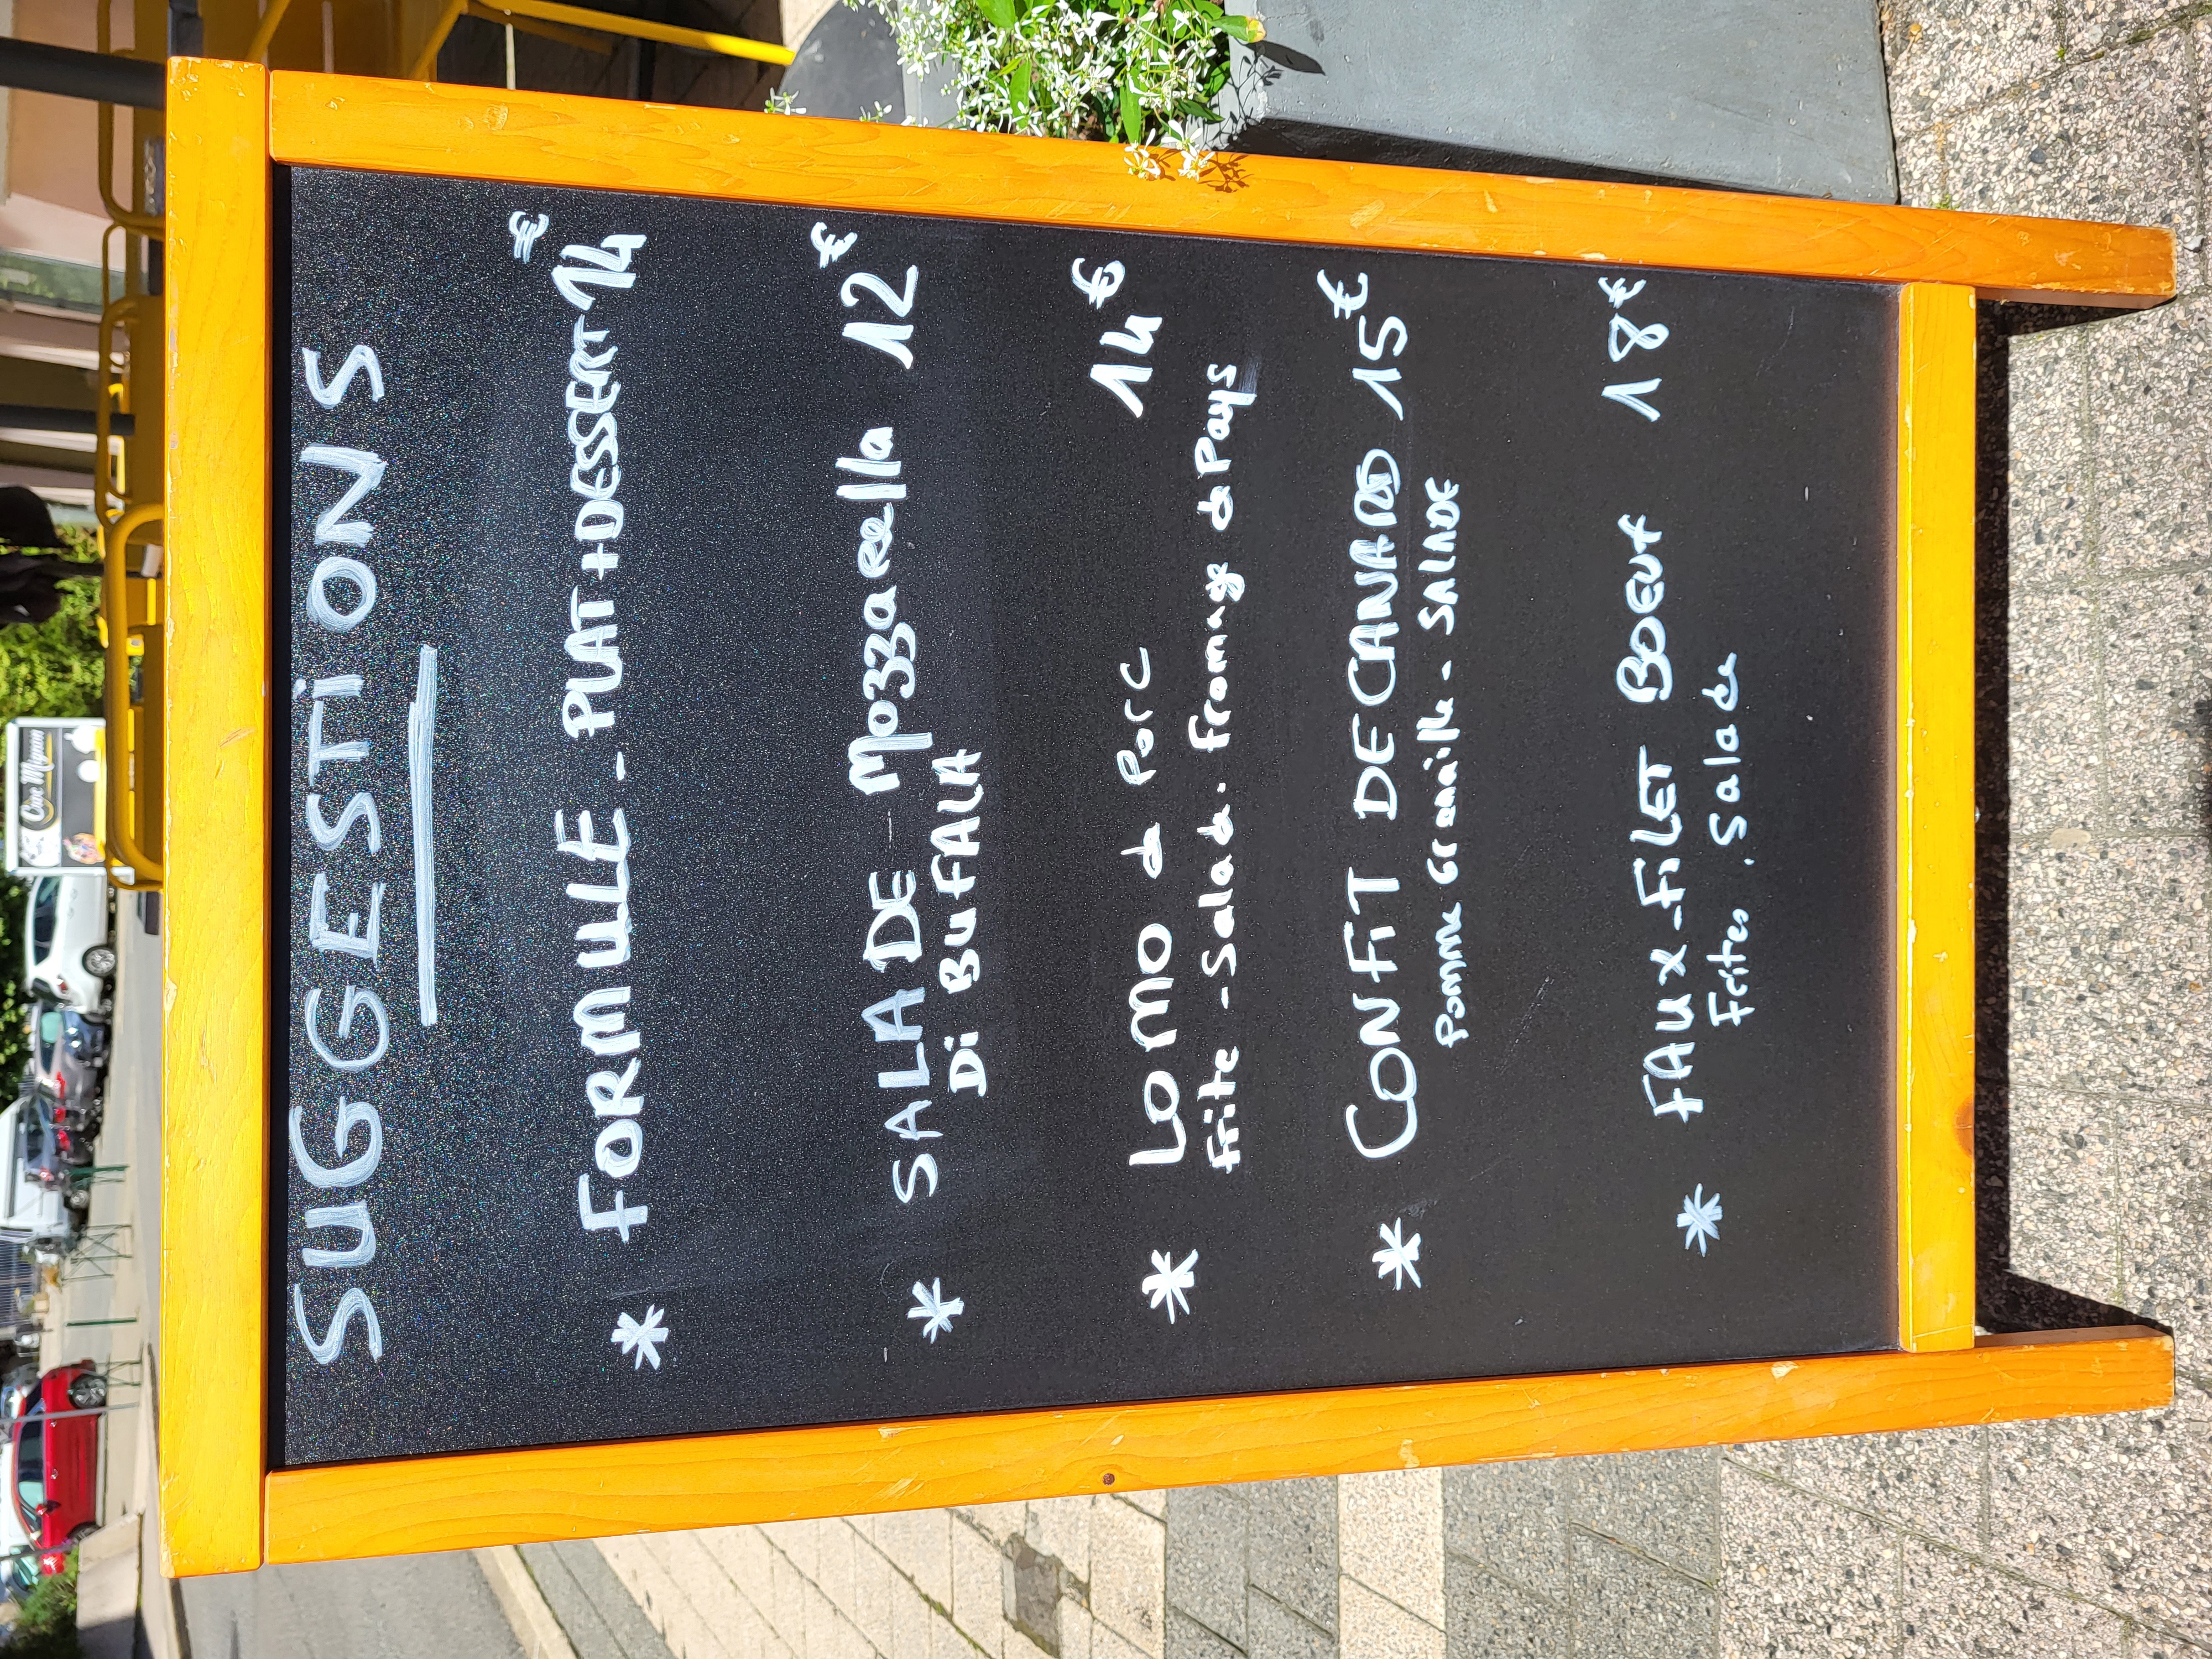 SUGGESTiONS
* FORMULE - PLAT + DESSERT 14€
* SALADE - Mozzarella 12€
Di BuFALA
* LOMO de Porc 14€
Frite - Salade - Fromage de Pays
* CONFiT DE CANARD 15€
Pomme Grenaille - SALADE
* FAUX-FiLET BOEUf 18€
Frites. Salade